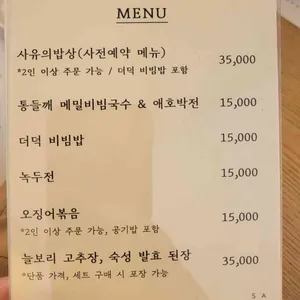 MENU
사유의밥상(사전예약 메뉴) 35,000
*2인 이상 주문 가능 / 더덕 비빔밥 포함
통들깨 메밀비빔국수 & 애호박전 15,000
더덕 비빔밥 15,000
녹두전 15,000
오징어볶음 15,000
*2인 이상 주문 가능, 공기밥 포함
늘보리 고추장, 숙성 발효 된장 35,000
*단품 가격, 세트 구매 시 포장 가능
S A